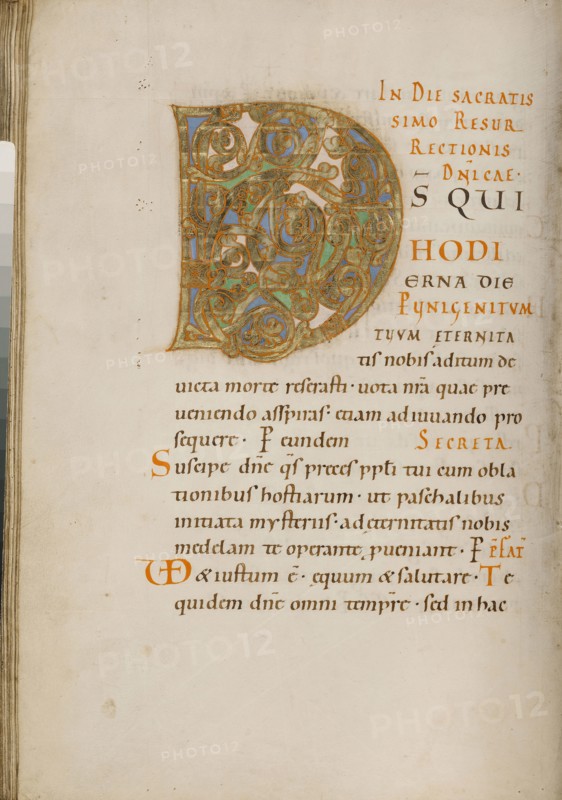 IN DIE SACRATIS
SIMO RESUR
RECTIONIS
DN̄ICAE·
D̄S QUI
HODI
ERNA DIE
P UNIGENITUM
TUUM ETERNITA
tis nobis aditum de
victa morte reserasti · vota nr̄a quae pre
veniendo asspiras · etiam adiuvando pro
sequere · P eundem SECRETA
Suscipe dn̄e q̄s preces ppl̄i tui cum obla
tionibus hostiarum · ut paschalibus
initiata mysteriis · ad ęternitatis nobis
medelam te operante pveniant · PREFAT̄
VD & iustum ē · ęquum & salutare · Te
quidem dn̄e omni tempr̄e · sed in hac
PHOTO12